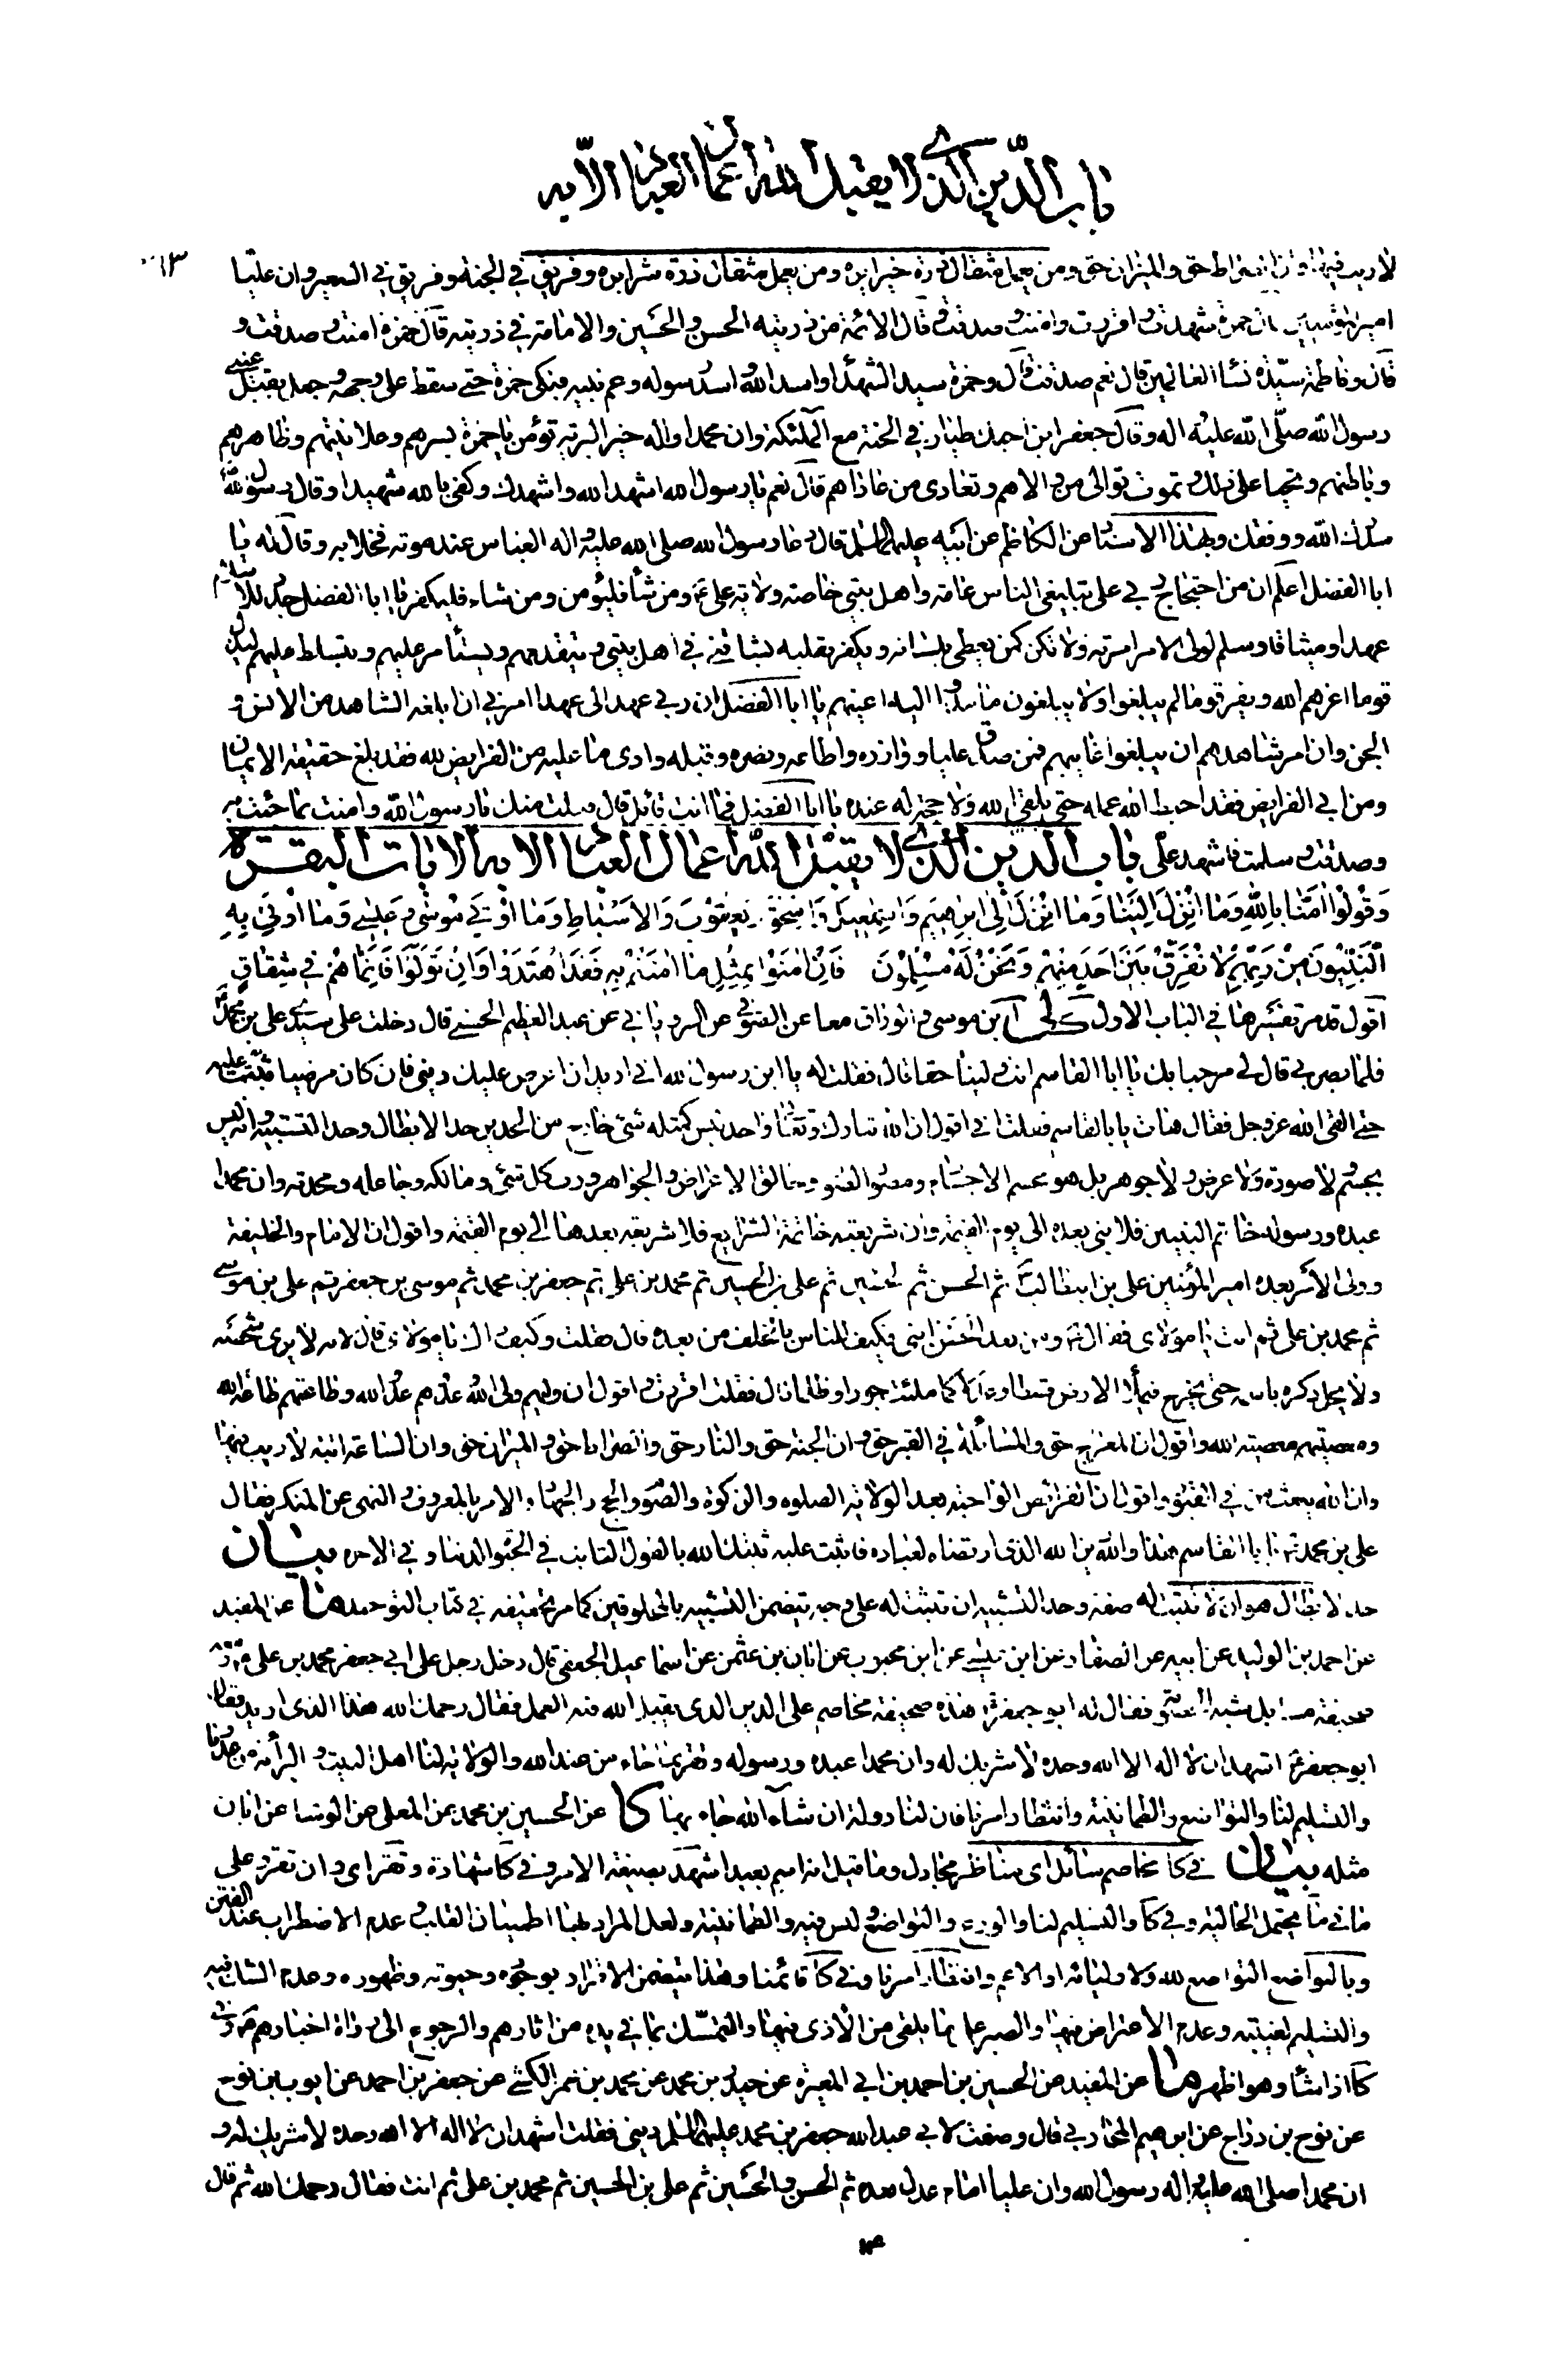 باب الدين الذي لا يقبل الله اعمال العباد الا به
لا ريب فيها وان الصراط حق والميزان حق ومن يعمل مثقال ذرة خيرا يره ومن يعمل مثقال ذرة شرا يره وفريق في الجنة وفريق في السعير وان عليا
امير المؤمنين قال حمزة شهدت واقررت وامنت وصدقت وقال الائمة من ذريته الحسن والحسين والامامة في ذريته قال حمزة امنت وصدقت و
قال وفاطمة سيدة نساء العالمين قال نعم صدقت وقال وحمزة سيد الشهداء واسد الله واسد رسوله وعم نبيه فبكى حمزة حتى سقط على وجهه وجعل يقبل عيني
رسول الله صلى الله عليه واله وقال جعفر ابن اخيك طيار في الجنة مع الملئكة وان محمدا واله خير البرية تؤمن يا حمزة بسرهم وعلانيتهم وظاهرهم
وباطنهم وتحيا على ذلك وتموت توالى من والاهم وتعادى من عاداهم قال نعم يا رسول الله اشهد الله واشهدك وكفى بالله شهيدا وقال رسول الله
سددك الله ووفقك وبهذا الاسناد عن الكاظم عن ابيه عليهما السلم قال دعا رسول الله صلى الله عليه واله العباس عند موته فخلا به وقال له يا
ابا الفضل اعلم ان من احتجاج ربي على تبليغى الناس عامة واهل بيتى خاصة ولاية على ومن شاء فليؤمن ومن شاء فليكفر يا ابا الفضل جدد للاسلام
عهدا وميثاقا وسلم لولى الامر امرته ولا تكن كمن يعطى بلسانه ويكفر بقلبه يشاقنى في اهل بيتى ويتقدمهم ويستأمر عليهم ويتسلط عليهم ليذل
قوما اعزهم الله ويعز قوما لم يبلغوا ولا يبلغون ما مدوا اليه اعينهم يا ابا الفضل ان ربي عهد الى عهدا امرني ان ابلغه الشاهد من الانس و
الجن وان امر شاهدهم ان يبلغوا غايبهم فمن صدق عليا ووازره واطاعه ونصره وقبله وادى ما عليه من الفرايض لله فقد بلغ حقيقة الايمان
ومن ابى الفرايض فقد احبط الله عمله حتى يلقى الله ولا حجة له عنده يا ابا الفضل فما انت قائل قال قبلت منك يا رسول الله وامنت بما جئت به
وصدقت وسلمت فاشهد على باب الدين الذي لا يقبل الله اعمال العباد الا به الايات البقرة
وَقُولُوا امَنَّا بِاللهِ وَمَا اُنْزِلَ اِلَيْنَا وَمَا اُنْزِلَ اِلى اِبْرهِيمَ وَاِسْمعِيلَ وَاِسْحقَ وَيَعْقُوبَ وَالاَسْبَاطِ وَمَا اُوتِيَ مُوسى وَعِيسى وَمَا اُوتِيَ بِهِ
النَّبِيُّونَ مِنْ رَبِّهِمْ لا نُفَرِّقُ بَيْنَ اَحَدٍ مِنْهُمْ وَنَحْنُ لَهُ مُسْلِمُونَ فَاِنْ امَنُوا بِمِثْلِ مَا امَنْتُمْ بِهِ فَقَدِ اهْتَدَوْا وَاِنْ تَوَلَّوْا فَاِنَّمَا هُمْ فِي شِقَاقٍ
اقول قد مر تفسيرها في الباب الاول لى ابن موسى والوراق معا عن الصوفي عن الروياني عن عبد العظيم الحسنى قال دخلت على سيدى على بن محمد
فلما بصر بي قال لي مرحبا بك يا ابا القاسم انت ولينا حقا قال فقلت له يا ابن رسول الله اني اريد ان اعرض عليك دينى فان كان مرضيا ثبت عليه
حتى القى الله عز وجل فقال هات يا با القاسم فقلت اني اقول ان الله تبارك وتعالى واحد ليس كمثله شئ خارج من الحدين حد الابطال وحد التشبيه وانه ليس
بجسم ولا صورة ولا عرض ولا جوهر بل هو مجسم الاجسام ومصور الصور وخالق الاعراض والجواهر ورب كل شئ ومالكه وجاعله ومحدثه وان محمدا
عبده ورسوله خاتم النبيين فلا نبى بعده الى يوم القيمة وان شريعته خاتمة الشرايع فلا شريعة بعدها الى يوم القيمة واقول ان الامام والخليفة
وولى الامر بعده امير المؤمنين على بن ابيطالب ثم الحسن ثم الحسين ثم على بن الحسين ثم محمد بن على ثم جعفر بن محمد ثم موسى بن جعفر ثم على بن موسى
ثم محمد بن على ثم انت يا مولاى فقال ومن بعدى الحسن ابنى فكيف للناس بالخلف من بعده قال فقلت وكيف ذاك يا مولاى قال لانه لا يرى شخصه
ولا يحل ذكره باسمه حتى يخرج فيملأ الارض قسطا وعدلا كما ملئت جورا وظلما قال فقلت اقررت واقول ان وليهم ولى الله وعدوهم عدو الله وطاعتهم طاعة الله
ومعصيتهم معصية الله واقول ان المعراج حق والمسائلة في القبر حق وان الجنة حق والنار حق والصراط حق والميزان حق وان الساعة اتية لا ريب فيها
وان الله يبعث من في القبور واقول ان الفرائض الواجبة بعد الولاية الصلوة والزكوة والصوم والحج والجهاد والامر بالمعروف والنهى عن المنكر فقال
على بن محمد يا ابا القاسم هذا والله دين الله الذى ارتضاه لعباده فاثبت عليه ثبتك الله بالقول الثابت في الحيوة الدنيا وفي الاخرة بيان
حد الابطال هو ان لا تثبت له صفة وحد التشبيه ان تثبت له على وجه يتضمن التشبيه بالمخلوقين كما مر تحقيقه في كتاب التوحيد ما عن المفيد
عن احمد بن الوليد عن ابيه عن الصفار عن ابن عيسى عن ابن محبوب عن ابان بن عثمن عن اسماعيل الجعفى قال دخل رجل على ابي جعفر محمد بن على ومعه
صحيفة مسائل شبه الخصومة فقال له ابو جعفر هذه صحيفة مخاصم على الدين الذى يقبل الله فيه العمل فقال رحمك الله هذا الذى اريد فقال
ابو جعفر اشهد ان لا اله الا الله وحده لا شريك له وان محمدا عبده ورسوله وتقر بما جاء من عند الله والولاية لنا اهل البيت والبرائة من عدونا
والتسليم لنا والتواضع والطمانينة وانتظار امرنا فان لنا دولة ان شاء الله جاء بها كا عن الحسين بن محمد عن المعلى عن الوشا عن ابان
مثله بيان في كا مخاصم سائل اى مناظر مجادل وما قيل انه اسم بعيد اشهد بصيغة الامر وفي كا شهادة وتقر اى وان تقر وعلى
ما في ما يحتمل الحالية وفي كا والتسليم لنا والورع والتواضع وليس فيه والطمانينة ولعل المراد بها اطمينان القلب وعدم الاضطراب عند الفتن
وبالتواضع التواضع لله ولاوليائه او الاعم وانتظار امرنا وفي كا قائمنا وهذا يتضمن الاقرار بوجوده وحيوته وظهوره وعدم الشك فيه
والتسليم لغيبته وعدم الاعتراض فيها والصبر على ما يلقى من الاذى فيها والتمسك بما في يده من اثارهم والرجوع الى رواة اخبارهم وفي
كا اذا شاء وهو اظهر ما عن المفيد عن الحسين بن احمد بن ابي المغيرة عن حيدر بن محمد عن محمد بن عمر الكشى عن جعفر بن احمد عن ايوب بن نوح
عن نوح بن دراج عن ابرهيم المخارقي قال وصفت لابي عبد الله جعفر بن محمد عليهما السلم دينى فقلت اشهد ان لا اله الا الله وحده لا شريك له و
ان محمدا صلى الله عليه واله رسول الله وان عليا امام عدل بعده ثم الحسن والحسين ثم على بن الحسين ثم محمد بن على ثم انت فقال رحمك الله ثم قال